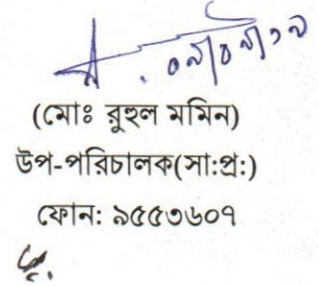 ০৯/০৯/১৯
(মোঃ রুহুল মমিন)
উপ-পরিচালক(সা:প্র:)
ফোন: ৯৫৫৩৬০৭